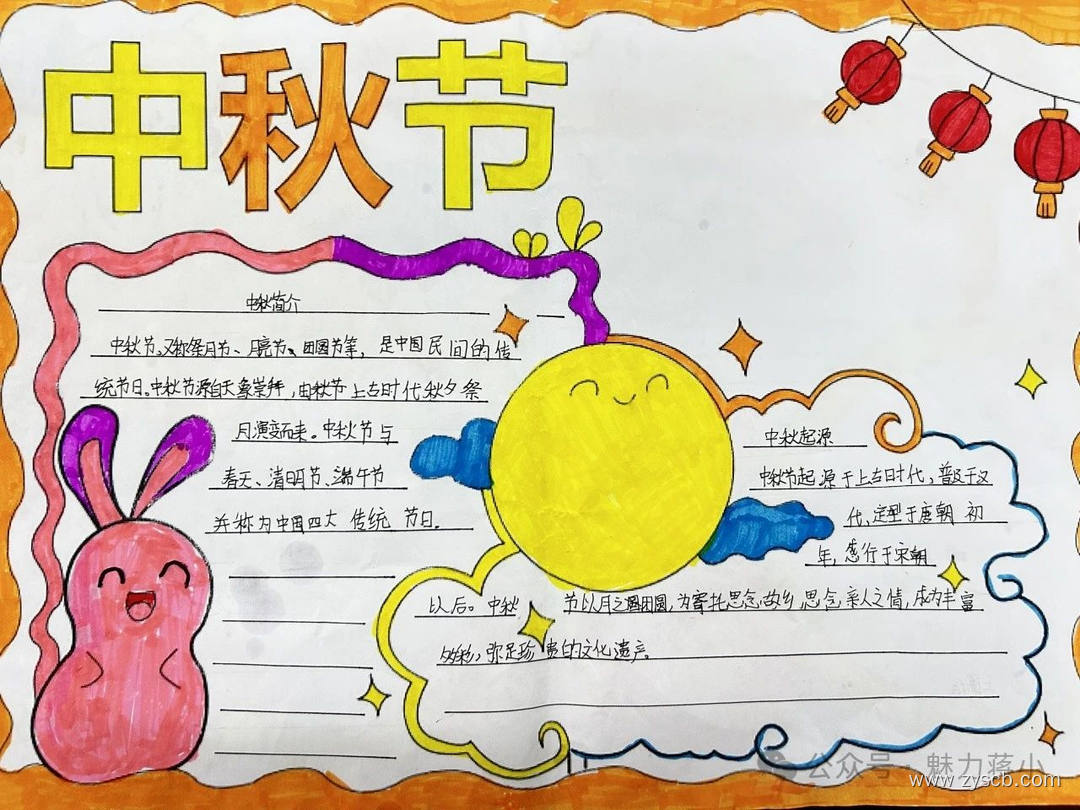 中秋节
中秋简介
中秋节,又称祭月节、月亮节、团圆节等,是中国民间的传
统节日。中秋节源自天象崇拜,由秋节上古时代秋夕祭
月演变而来。中秋节与
春天、清明节、端午节
并称为中国四大传统节日。
中秋起源
中秋节起源于上古时代,普及于汉
代,定型于唐朝初
年,盛行于宋朝
以后。中秋节以月之圆团圆,为寄托思念故乡,思念亲人之情,成为丰富
多彩,弥足珍贵的文化遗产。
公众号·魅力蒋小
www.zyscb.com